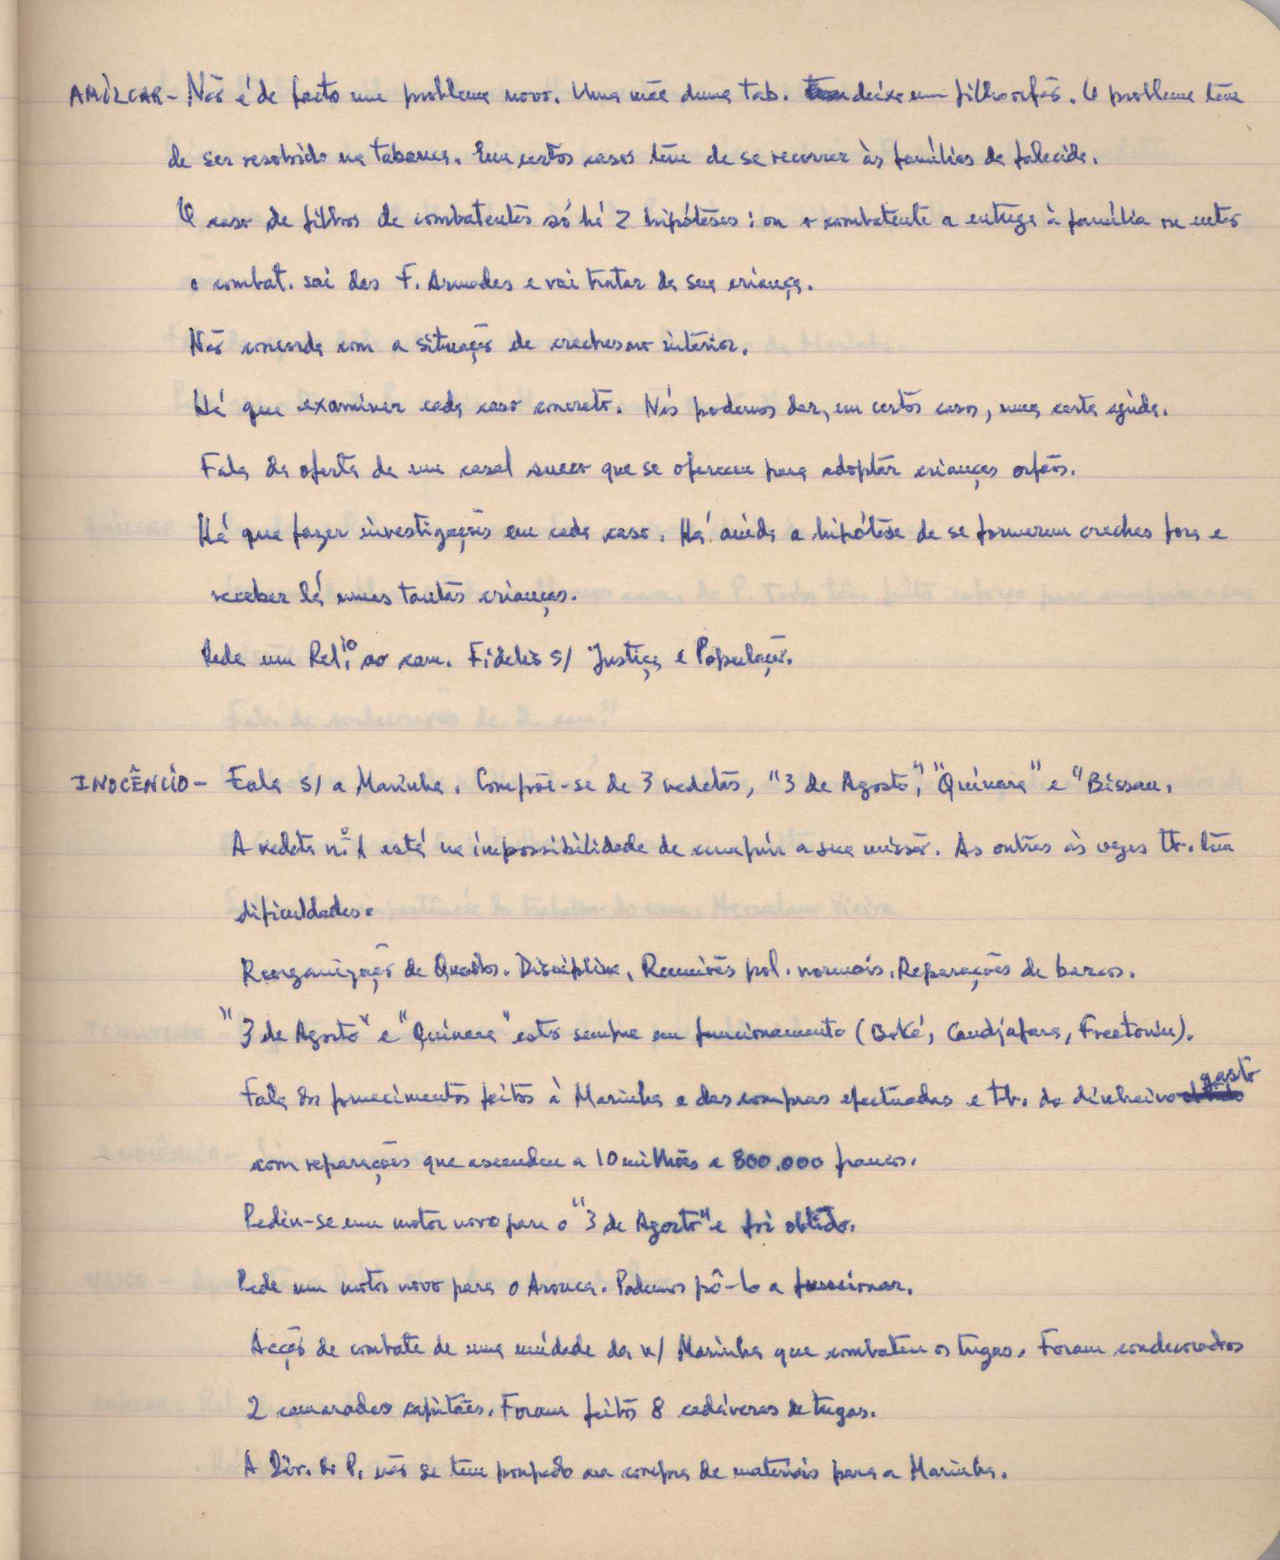 AMÍLCAR - Não é de facto um problema novo. Uma mãe duma tab. deixa um filho orfão. O problema tem
de ser resolvido na tabanca. Em certos casos tem de se recorrer às famílias da falecida.
O caso de filhos de combatentes só há 2 hipóteses: ou o combatente a entrega à família ou então
o combat. sai das F. Armadas e vai tratar da sua criança.
Não concorda com a situação de creches no interior.
Há que examinar cada caso concreto. Nós podemos dar, em certos casos, uma certa ajuda.
Fala da oferta de um casal sueco que se oferecem para adoptar crianças orfãos.
Há que fazer investigações em cada caso. Há ainda a hipótese de se formarem creches fora e
receber lá umas tantas crianças.
Pede um Relio ao cam. Fidelis s/ Justiça e População.
INOCÊNCIO - Fala s/ a Marinha. Compõe-se de 3 vedetas, "3 de Agosto", "Quínara" e "Bissau.
A vedeta n.º 1 está na impossibilidade de cumprir a sua missão. As outras às vezes tb. têm
dificuldades.
Reorganização de Quadros. Disciplina, Reuniões pol. normais. Reparações de barcos.
"3 de Agosto" e "Quínara" estão sempre em funcionamento (Boké, Candjafara, Freetown).
Fala dos fornecimentos feitos à Marinha e das compras efectuadas e tb. do dinheiro gasto
com reparações que ascendeu a 10 milhões e 800.000 francos.
Pediu-se um motor novo para o "3 de Agosto" e foi obtido.
Pede um motor novo para o Arouca. Podemos pô-lo a funcionar.
Acção de combate de uma unidade da n/ Marinha que combateu os tugas. Foram condecorados
2 camaradas capitães. Foram feitos 8 cadáveres de tugas.
A Dir. do P. não se tem poupado na compra de materiais para a Marinha.